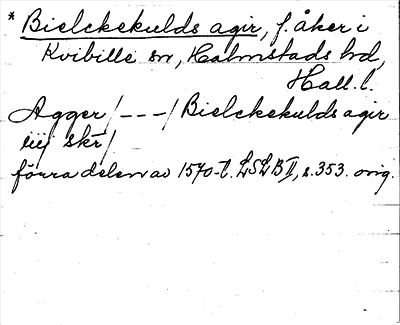 * Bielckekulds agir, f. åker i
Kvibille sn, Halmstads hd,
Hall. l.
Agger / - - - / Bielckekulds agir
iiij skr /
förra delen av 1570-t. LSLB II, s. 353. orig.